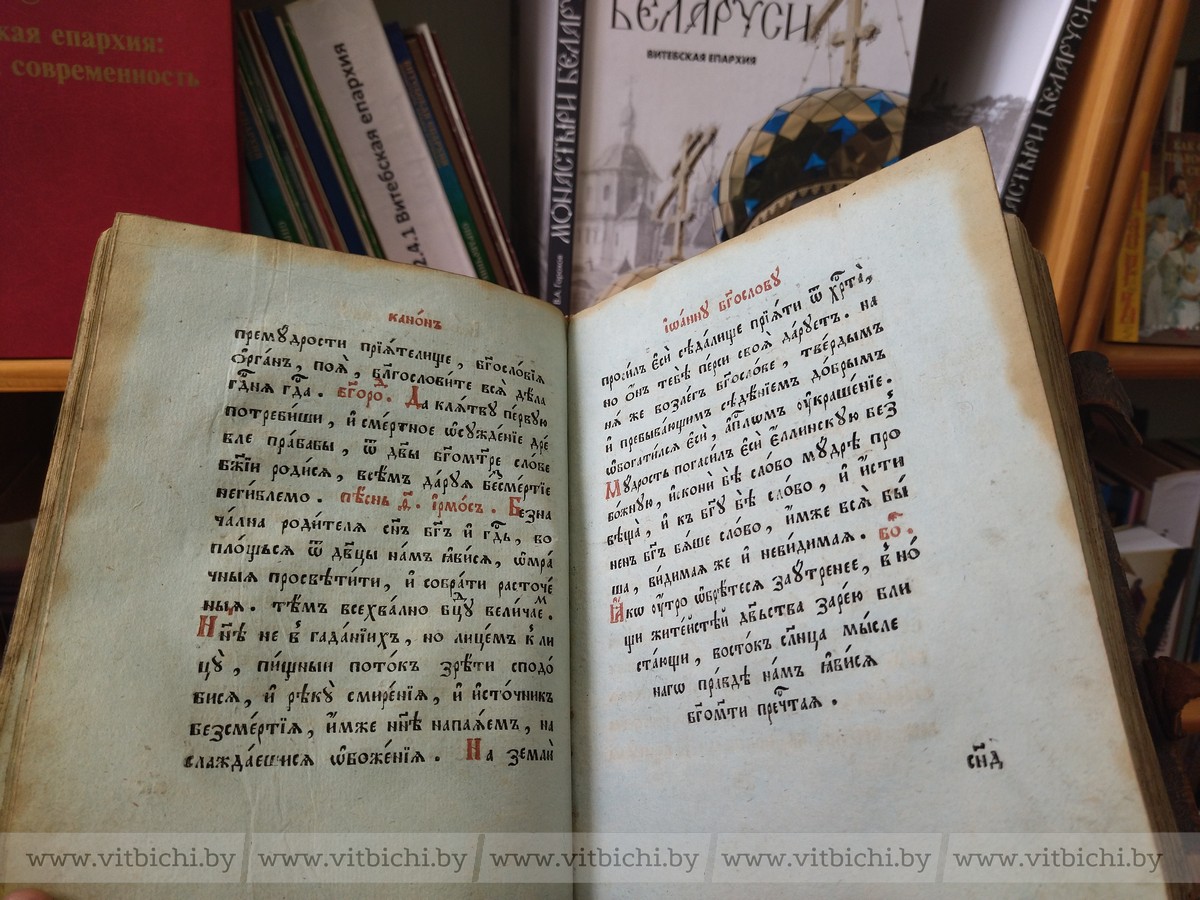 кая епархия:
современность
2.4.1 Витебская епархия
МОНАСТЫРИ БЕЛАРУ
В.А. Горонов
БЕЛАРУСИ
ВИТЕБСКАЯ ЕПАРХИЯ
МОНАСТЫРИ БЕЛАРУСИ
кано́нъ
премꙋ́дрости прїѧ́телище , бг҃осло́вїѧ
ѻ҆рга́нъ , поѧ̀ , бл҃гослови́те всѧ̀ дѣла̀
гдⷭ҇нѧ гдⷭ҇а . бг҃оро . Да клѧ́твꙋ пе́рвꙋю
потреби́ши , и҆ сме́ртное ѡ҆сꙋжде́нїе дре́
вле праба́бы , ѿ дв҃ы бг҃омт҃ре сло́ве
бж҃їи роди́сѧ , всѣ́мъ да́рꙋѧ безсме́ртїе
неги́блемо . пѣ́снь д҃ . і҆рмо́съ . Безна
ча́лна роди́телѧ сн҃ъ бг҃ъ и҆ гдⷭ҇ь , во
пло́щьсѧ ѿ дв҃цы на́мъ ꙗ҆ви́сѧ , ѡ҆мра
чныѧ просвѣти́ти , и҆ собра́ти расточе́
ныѧ . тѣ́мъ всехва́лно бц҃ꙋ велича́емъ .
Нн҃ѣ не в̾ гада́нїихъ , но лице́мъ к̾ ли
цꙋ̀ , пи́щныи пото́къ зрѣ́ти сподо́
бисѧ , и҆ рѣкꙋ̀ смире́нїѧ , и҆ и҆сто́чникъ
безсме́ртїѧ , и҆́мже нн҃ѣ напаѧ́емъ , на
слажда́ешисѧ ѡ҆боже́нїѧ . На землѝ
і҆ѡа́ннꙋ бг҃осло́вꙋ
проси́лъ є҆сѝ сѣда́лище прїѧ́ти ѿ хрⷭ҇та̀ ,
но ѻ҆́нъ тебѣ̀ пе́рси своѧ̀ да́рꙋетъ . на
нѧ́ же возле́гъ бг҃осло́ве , тве́рдымъ
и҆ пребыва́ющимъ сѣде́нїемъ до́брымъ
ѡ҆богати́лсѧ є҆сѝ , а҆пⷭ҇лѡмъ ᲂу҆краше́нїе .
Мꙋ́дрость погаси́лъ є҆сѝ є҆́ллинскꙋю без̾
бо́жнꙋю , и҆сконѝ бѣ̀ сло́во мꙋ́дрѣ про
вѣща̀ , и҆ къ бг҃ꙋ бѣ̀ сло́во , и҆ и҆́сти
ненъ бг҃ъ бѧ́ше сло́во , и҆́мже всѧ̀ бы́
ша , ви́димаѧ же и҆ неви́димаѧ . бо .
Ꙗ҆́кѡ ᲂу҆́тро ѡ҆брѣ́тесѧ заꙋ́тренее , в̾ но́
щи жите́йстѣй дв҃ьства заре́ю бли
ста́ющи , восто́къ сл҃нца мы́сле
нагѡ пра́вдѣ на́мъ ꙗ҆ви́сѧ
бг҃омт҃и прчⷭ҇таѧ .
сн҃д
www.vitbichi.by www.vitbichi.by www.vitbichi.by www.vitbichi.by www.vitbichi.by